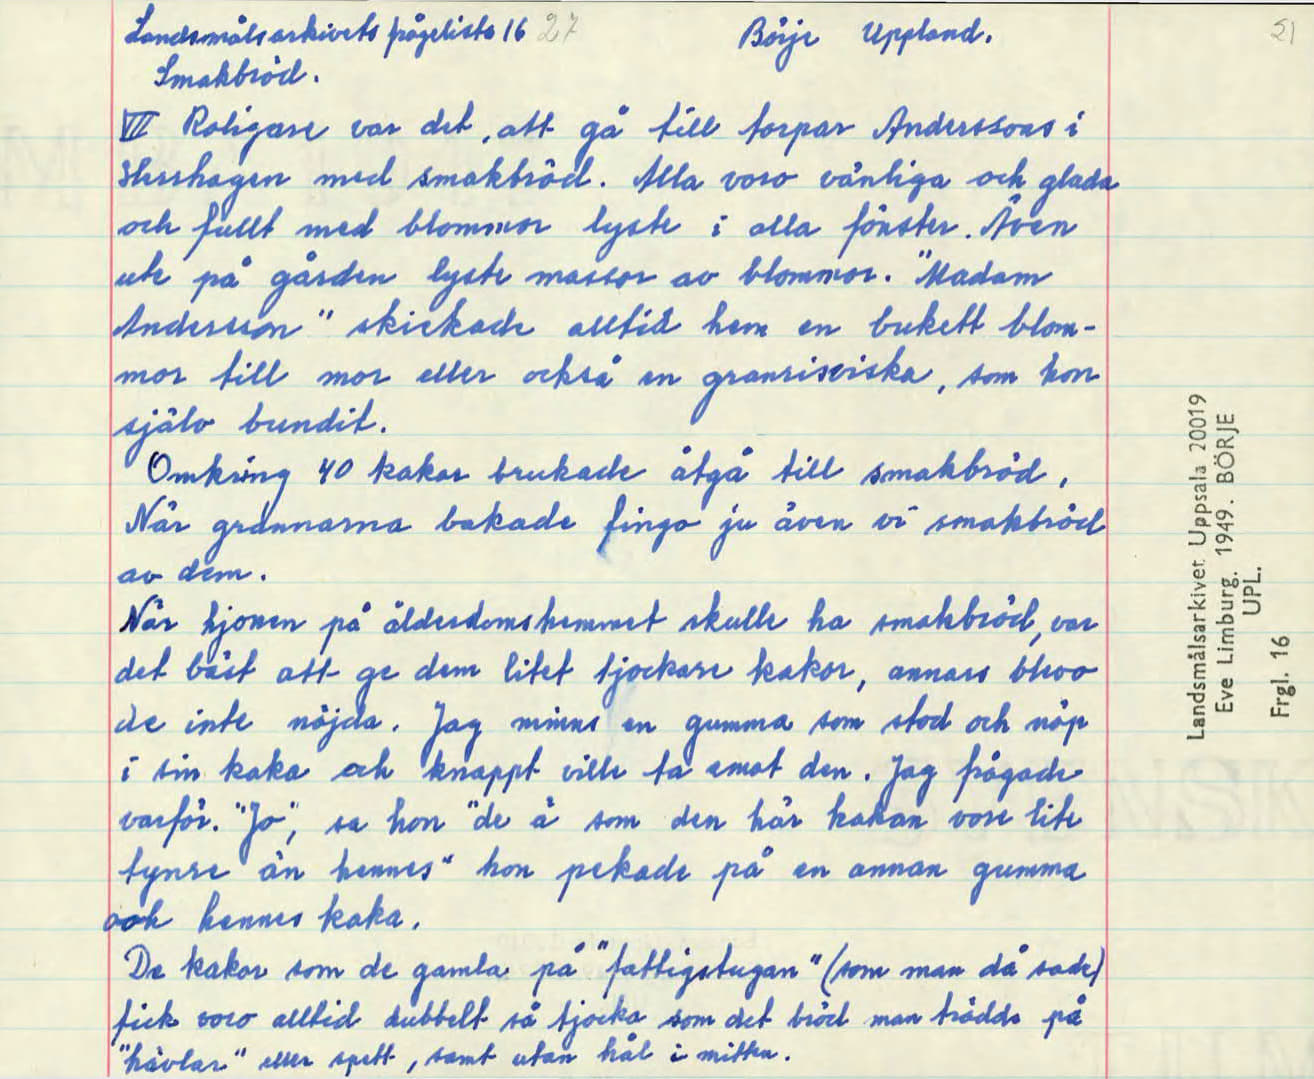 Landsmålsarkivets frågelista 16 27 Börje Uppland. 21
Smakbröd.
VII Roligare var det, att gå till torpar Anderssons i
Slusshagen med smakbröd. Alla voro vänliga och glada
och fullt med blommor lyste i alla fönster. Även
ute på gården lyste massor av blommor. "Madam
Andersson" skickade alltid hem en bukett blom-
mor till mor eller också en granrisviska, som hon
själv bundit.
Omkring 40 kakor brukade åtgå till smakbröd,
När grannarna bakade fingo ju även vi smakbröd
av dem.
När hjonen på ålderdomshemmet skulle ha smakbröd, var
det bäst att ge dem litet tjockare kakor, annars blevo
de inte nöjda. Jag minns en gumma som stod och nöp
i sin kaka och knappt ville ta emot den. Jag frågade
varför. "Jo", sa hon "de ä som den här kakan vore lite
tynre än hennes" hon pekade på en annan gumma
och hennes kaka.
De kakor som de gamla på "fattigstugan" (som man då sade)
fick voro alltid dubbelt så tjocka som det bröd man trädde på
"hävlar" eller spett, samt utan hål i mitten.
Landsmålsarkivet. Uppsala 20019
Eve Limburg. 1949. BÖRJE
UPL.
Frgl. 16